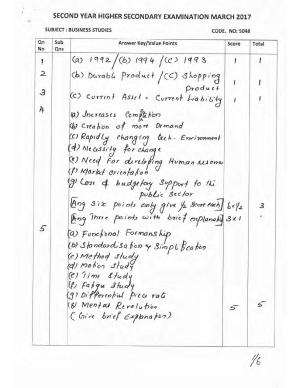 SECOND YEAR HIGHER SECONDARY EXAMINATION MARCH 2017
SUBJECT : BUSINESS STUDIES CODE. NO: 5048
Qn No Sub Qns Answer Key/Value Points Score Total
1 (a) 1992/(b) 1994/(c) 1993 1 1
2 (b) Durable Product/(c) Shopping Product 1 1
3 (c) Current Asset - Current Liability 1 1
4 (a) Increases Competition
(b) Creation of more Demand
(c) Rapidly changing tech. Environment
(d) Necessity for change
(e) Need for developing Human resource
(f) Market orientation
(g) Loss of budgetary Support to the
public Sector
[Any Six points only give ½ Score each] 6x½ 3
[Any Three points with brief explanatn] 3x1
5 (a) Functional Formanship
(b) Standardisation & Simplification
(c) Method Study
(d) Motion Study
(e) Time Study
(f) Fatigu Study
(g) Differential Piece rate
(h) Mental Revolution 5 5
(Give brief Explanation)
1/6